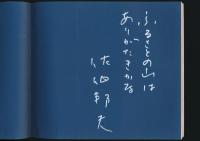 ふるさとの山は
ありがたきかな
佐伯邦夫